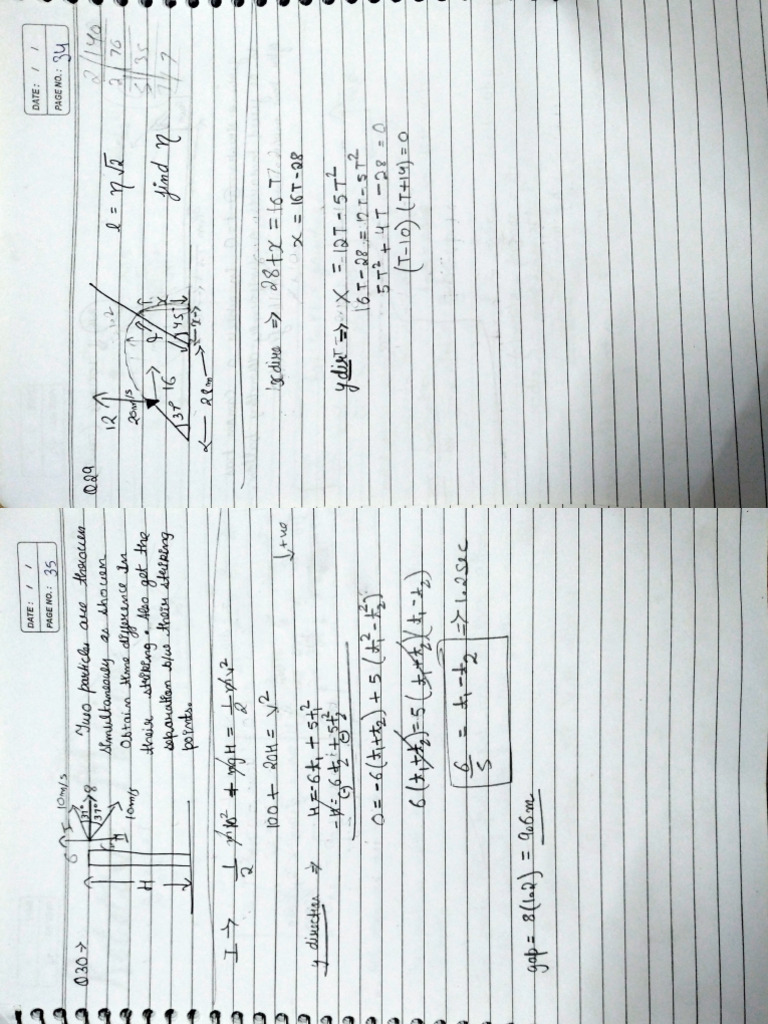 DATE: / /
PAGE NO.: 34
Q29
12
20m/s
16
37°
45
x
x
28m
l = η√2
find η
2/140
2/70
5/35
7/7
x dirⁿ ⇒ 28+x = 16T
x = 16T-28
y dirⁿ ⇒ x = 12T - 5T²
16T - 28 = 12T - 5T²
5T² + 4T - 28 = 0
(T-10) (T+14) = 0
DATE: / /
PAGE NO.: 35
Q30 →
6
I
10m/s
37°
8
37°
II
10m/s
H
Two particles are thrown
simultaneously as shown
Obtain time difference in
their striking. Also get the
separation b/w their striking
points.
I → 1/2 m10² + mgH = 1/2 mv²
100 + 20H = v²
↓+ve
y direction ⇒ H = -6t₁ + 5t₁²
-H = 6t₂ + 5t₂²
0 = -6(t₁+t₂) + 5(t₁²-t₂²)
6(t₁+t₂) = 5(t₁+t₂)(t₁-t₂)
6/5 = t₁-t₂ ⇒ 1.2 sec
gap = 8(1.2) = 9.6m